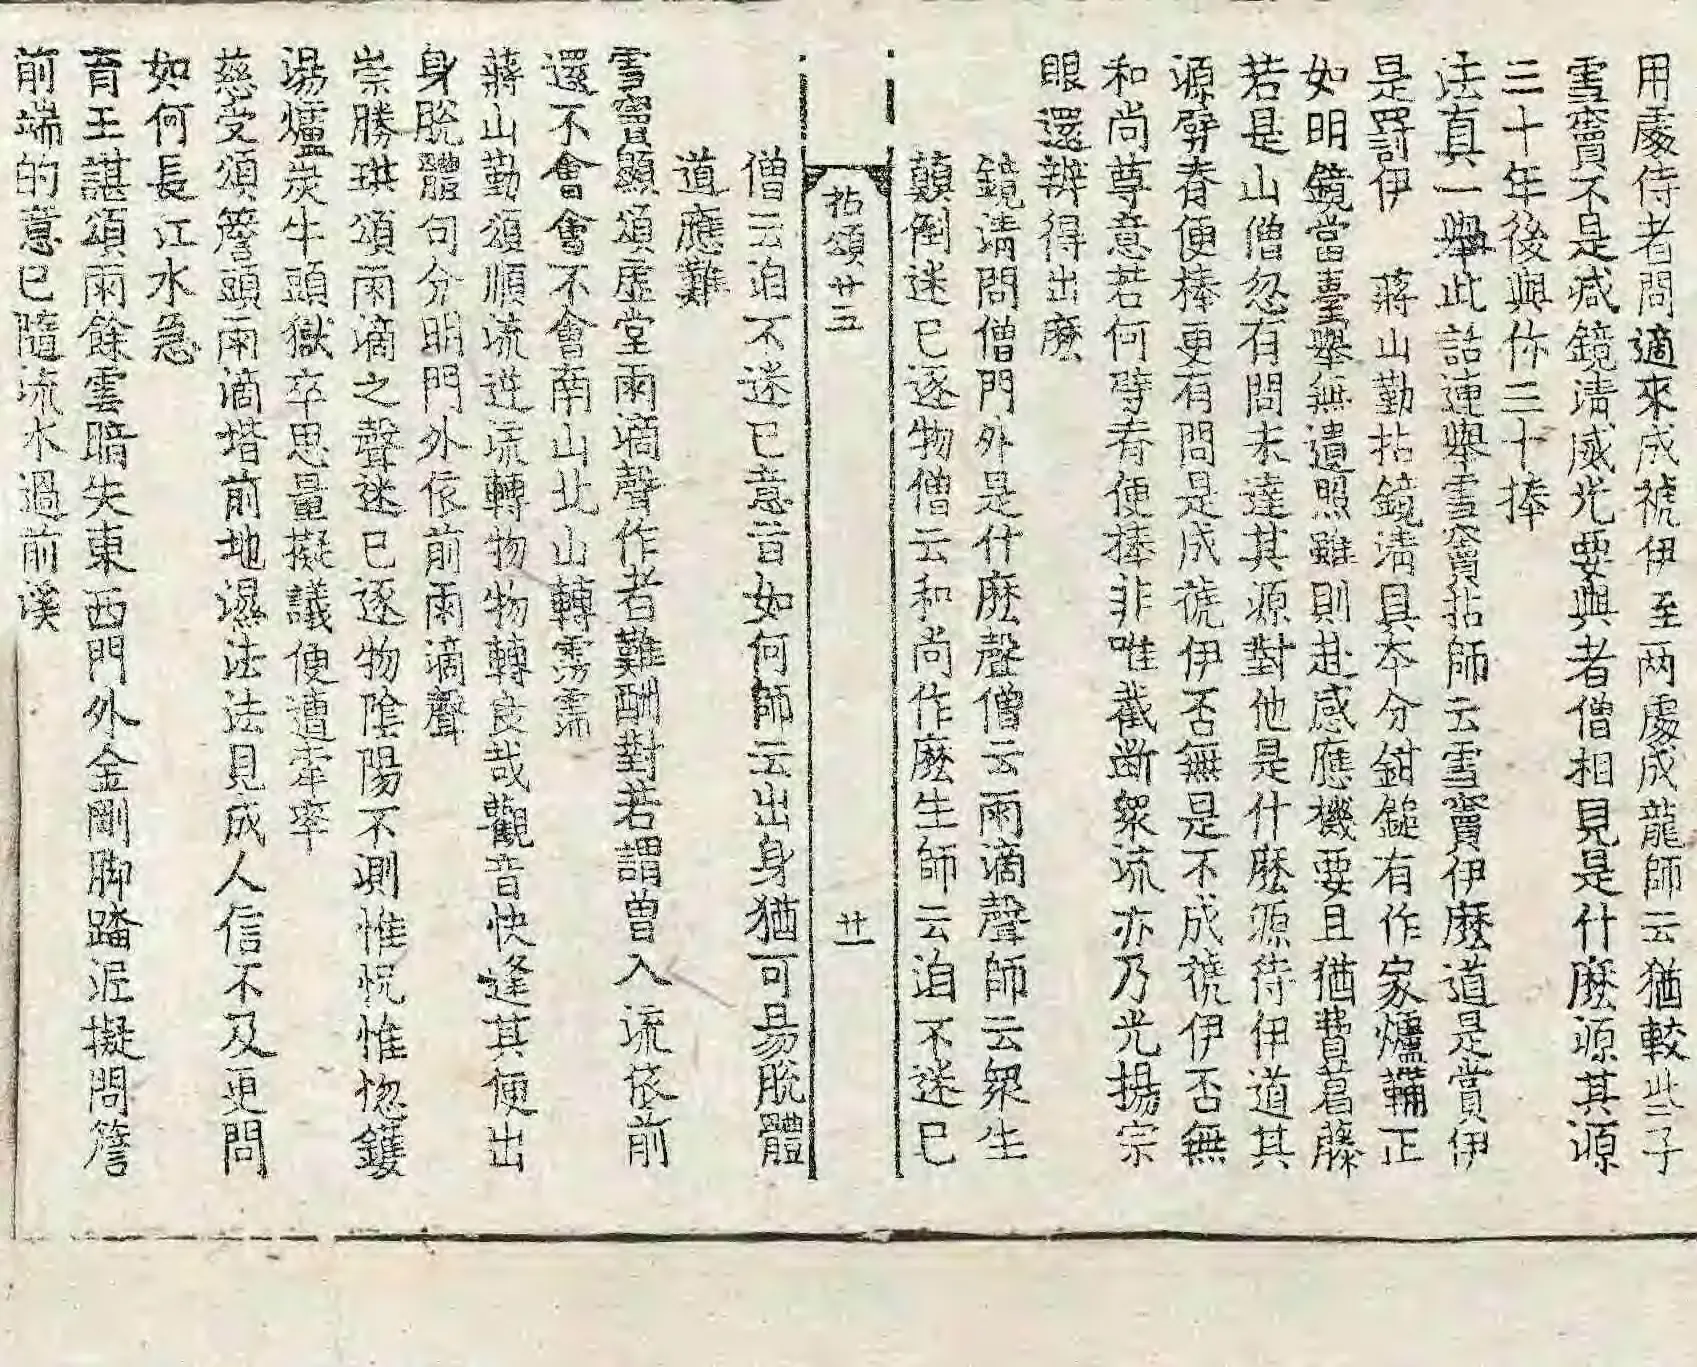 用處侍者問適來成禠伊至兩處成龍師云猶較些子
雪竇不是减鏡淸威光要與者僧相見是什麽源其源
三十年後與你三十捧
法真一舉此話連舉雪竇拈師云雪竇伊麽道是賞伊
是罸伊　蔣山勤拈鏡淸具本分鉗鎚有作家爐韛正
如明鏡當臺舉無遺照雖則赴感應機要且猶費葛藤
若是山僧忽有問未達其源對他是什麽源待伊道其
源劈脊便棒更有問是成禠伊否無是不成禠伊否無
和尚尊意若何劈脊便捧非唯截斷衆流亦乃光揚宗
眼還辨得出麽
鏡淸問僧門外是什麽聲僧云雨滴聲師云衆生
顚倒迷已逐物僧云和尚作麽生師云洎不迷已
拈頌廿五
廿一
僧云洎不迷已意旨如何師云出身猶可易脫體
道應難
雪竇顯頌虛堂雨滴聲作者難酬對若謂曾入流依前
還不會會不會南山北山轉霶霈
蔣山勤頌順流逆流轉物物轉良哉觀音快逢其便出
身脫體句分明門外依前雨滴聲
崇勝珙頌雨滴之聲迷已逐物陰陽不測惟怳惟惚鑊
湯爐炭牛頭獄卒思量擬議便遭牽率
慈受頌簷頭雨滴堦前地濕法法見成人信不及更問
如何長江水急
育王諶頌雨餘雲暗失東西門外金剛脚踏泥擬問簷
前端的意已隨流水過前溪